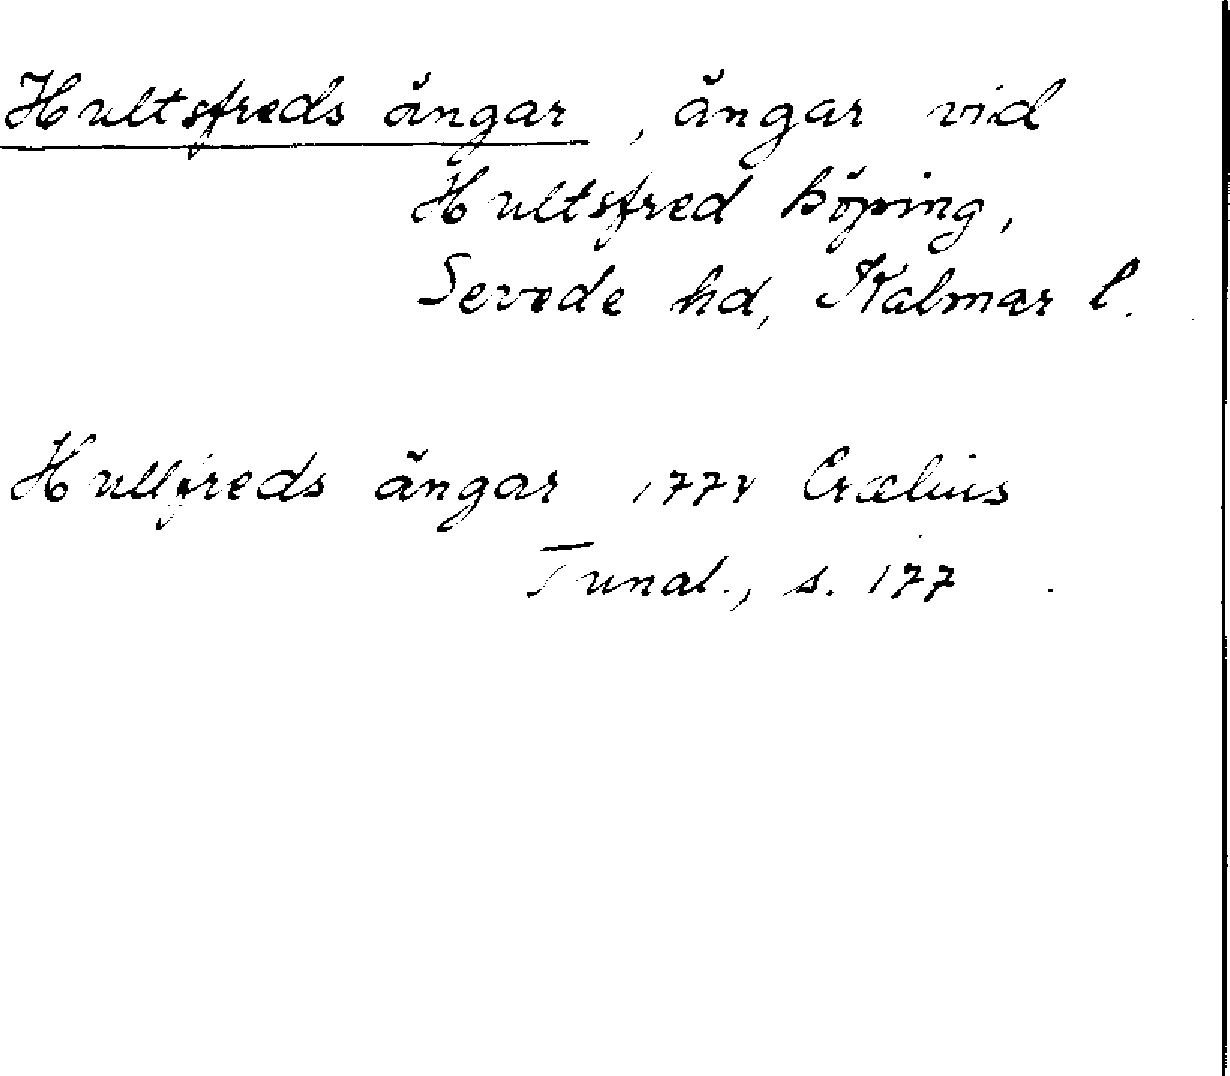 Hultsfreds ängar, ängar vid
Hultsfred köping,
Sevede hd, Kalmar l.
Hullfreds ängar 1774 Crælius
Tunal., s. 177